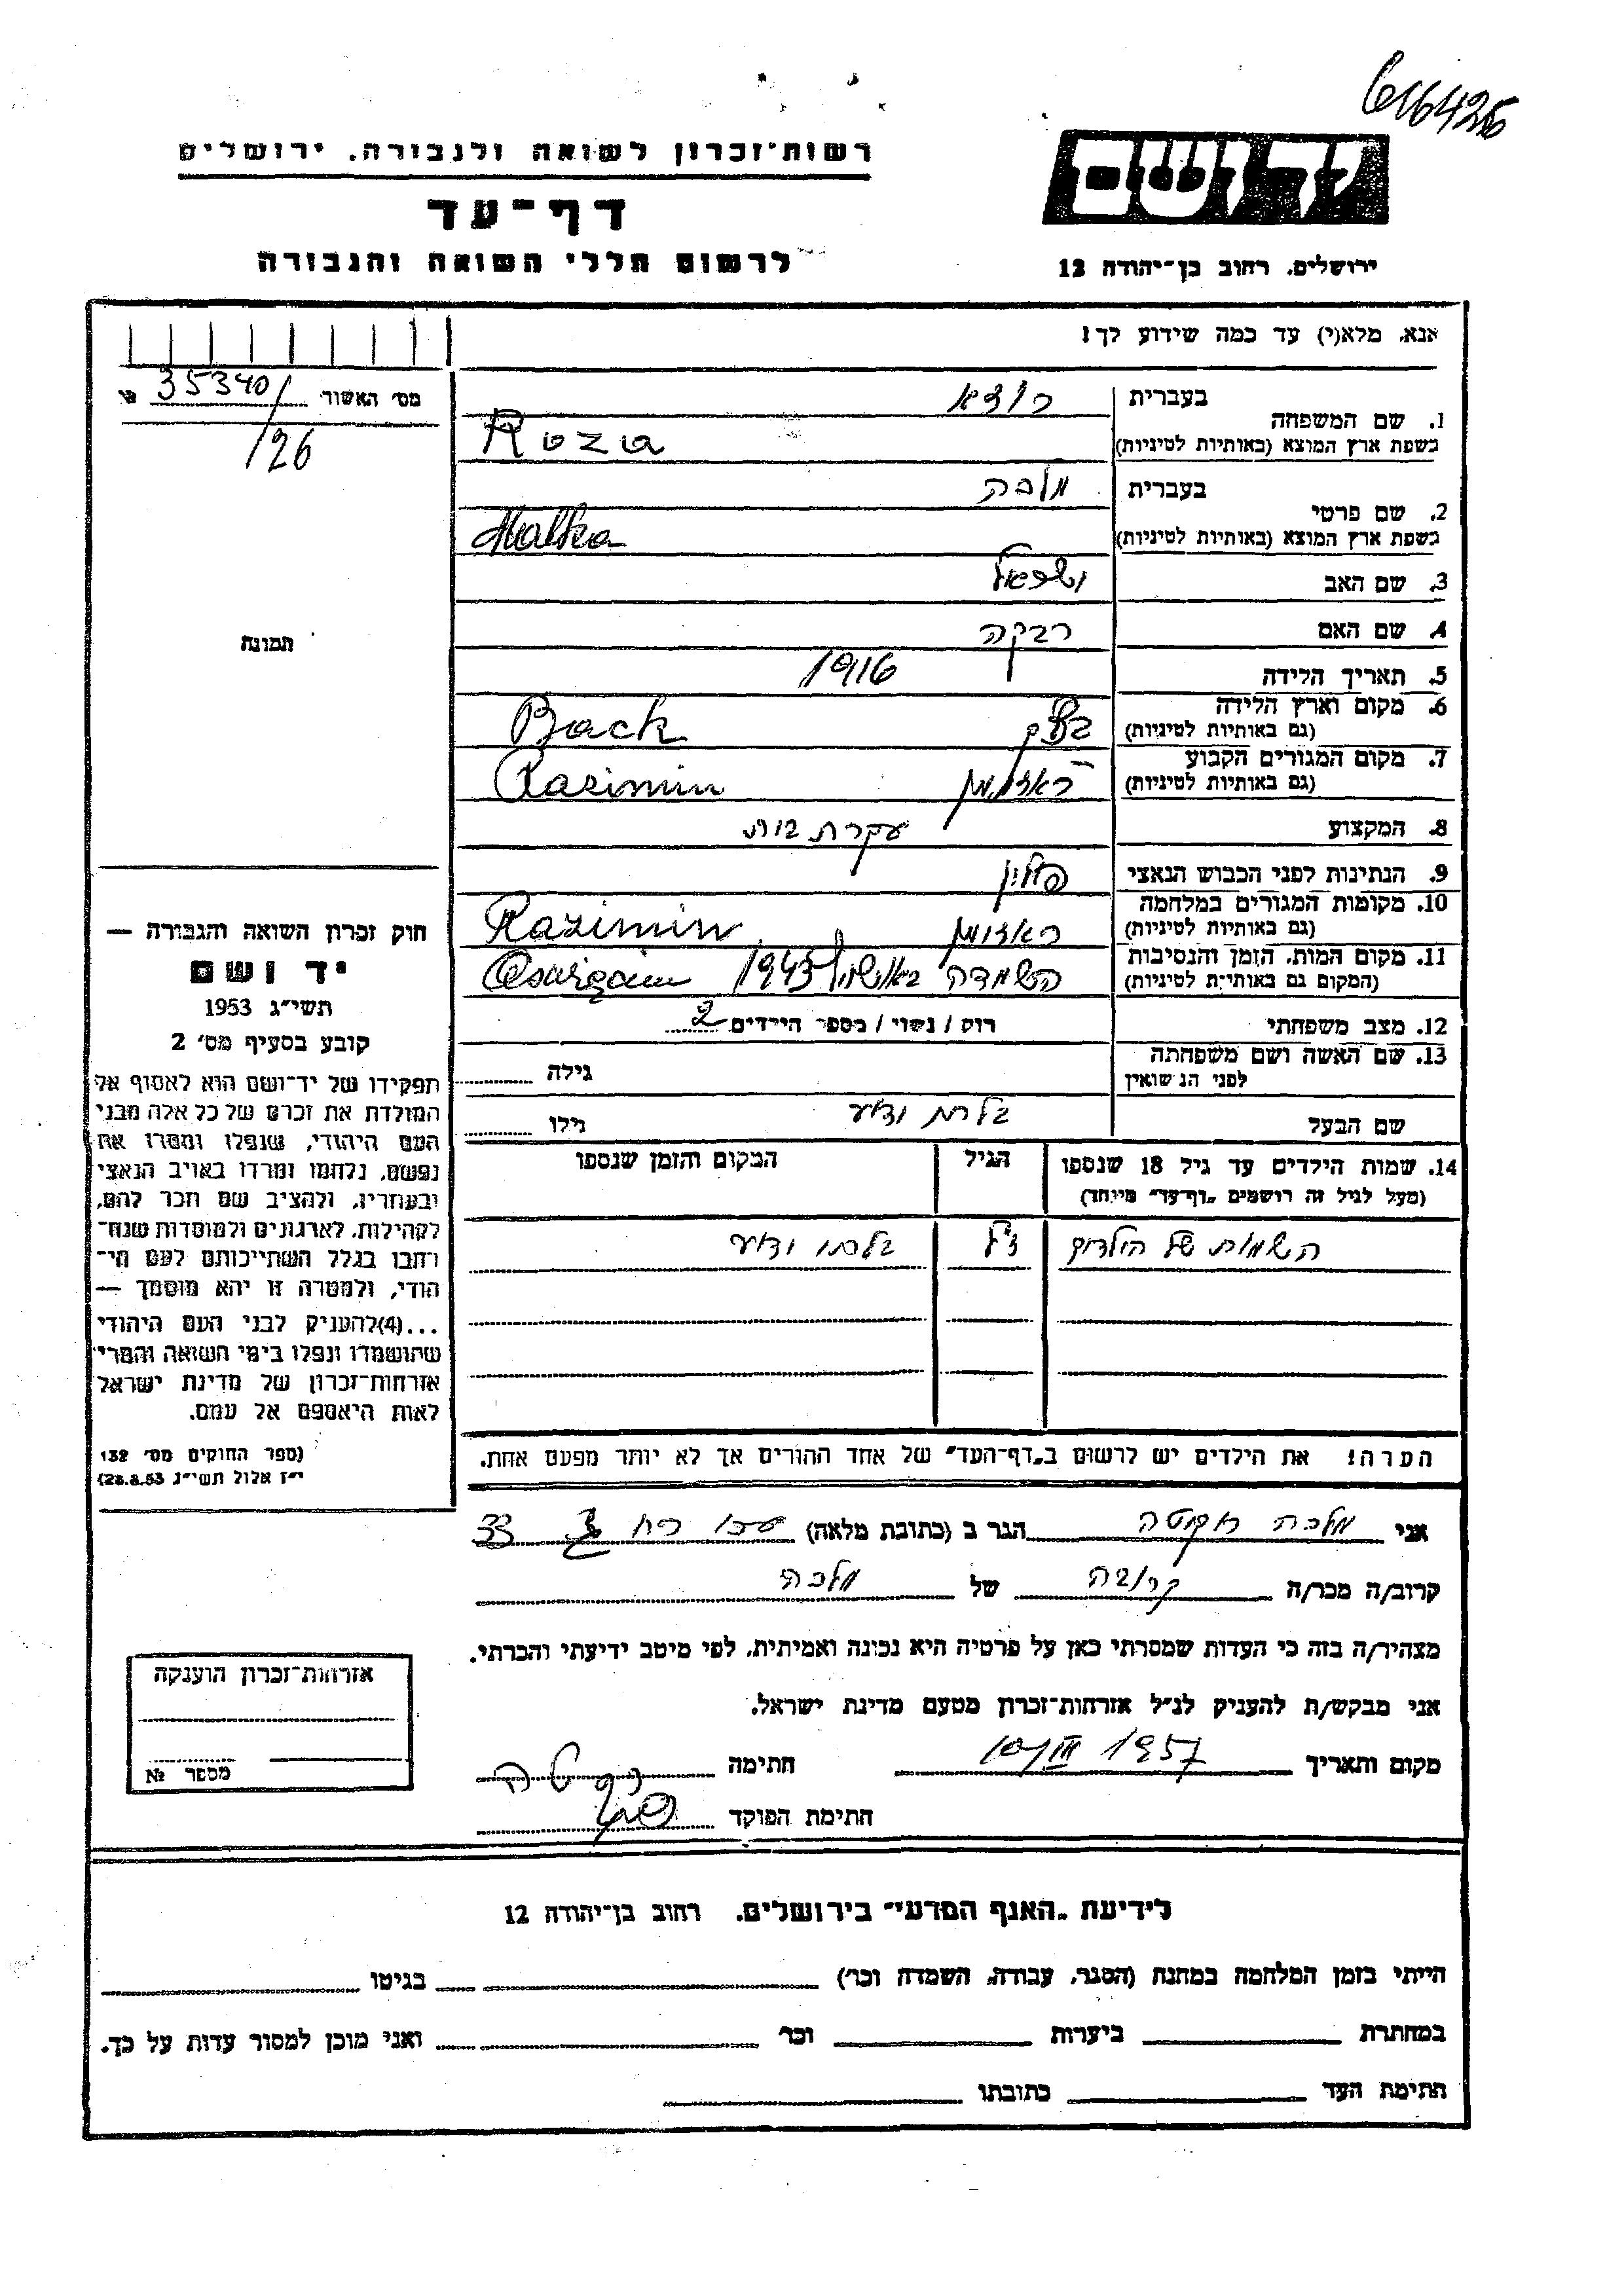 616426
רשות־זכרון לשואה ולגבורה. ירושלים
דף־עד
לרשום חללי השואה והגבורה
יד ושם
ירושלים. רחוב בן־יהודה 12
אנא, מלא(י) עד כמה שידוע לך!
מס׳ האשור 35340/
/26
תמונה
1. שם המשפחה
בעברית רוזא
בשפת ארץ המוצא (באותיות לטיניות) Roza
2. שם פרטי
בעברית מלכה
בשפת ארץ המוצא (באותיות לטיניות) Malka
3. שם האב ישראל
4. שם האם רבקה
5. תאריך הלידה 1916
6. מקום וארץ הלידה
(גם באותיות לטיניות) Back
7. מקום המגורים הקבוע
(גם באותיות לטיניות) ראזימין Razimin
8. המקצוע עקרת בית
9. הנתינות לפני הכבוש הנאצי פולין
10. מקומות המגורים במלחמה
(גם באותיות לטיניות) ראזימין Razimin
11. מקום המות, הזמן והנסיבות
(המקום גם באותיות לטיניות) השמדה 1943
12. מצב משפחתי רוק / נשוי / מספר הילדים 2
13. שם האשה ושם משפחתה
לפני הנשואין
גילה
שם הבעל בלתי ידוע גילו
14. שמות הילדים עד גיל 18 שנספו
(מעל לגיל זה רושמים „דף־עד” מיוחד)
הגיל
המקום והזמן שנספו
השמות של הילדים
בלתי ידוע
הערה! את הילדים יש לרשום ב„דף־העד” של אחד ההורים אך לא יותר מפעם אחת.
חוק זכרון השואה והגבורה —
יד ושם
תשי״ג 1953
קובע בסעיף מס׳ 2
תפקידו של יד־ושם הוא לאסוף אל
המולדת את זכרם של כל אלה מבני
העם היהודי, שנפלו ומסרו את
נפשם, נלחמו ומרדו באויב הנאצי
ובעוזריו, ולהציב שם וזכר להם,
לקהילות, לארגונים ולמוסדות שנח־
רבו בגלל השתייכותם לעם הי־
הודי, ולמטרה זו יהא מוסמך —
...(4) להעניק לבני העם היהודי
שהושמדו ונפלו בימי השואה והמרי
אזרחות־זכרון של מדינת ישראל
לאות היאספם אל עמם.
(ספר החוקים מס׳ 132
י״ז אלול תשי״ג 28.8.53)
אני מלכה הגר ב (כתובת מלאה) 33
קרוב/ה מכר/ה קרובה של מלכה
מצהיר/ה בזה כי העדות שמסרתי כאן על פרטיה היא נכונה ואמיתית, לפי מיטב ידיעתי והכרתי.
אני מבקש/ת להעניק לנ״ל אזרחות־זכרון מטעם מדינת ישראל.
מקום ותאריך 10/III 1957 חתימה
חתימת הפוקד
אזרחות־זכרון הוענקה
מספר №
לידיעת „האנף המדעי” בירושלים. רחוב בן־יהודה 12
הייתי בזמן המלחמה במחנה (הסגר, עבודה, השמדה וכו׳) בגיטו
במחתרת ביערות וכו׳ ואני מוכן למסור עדות על כך.
חתימת העד כתובתו